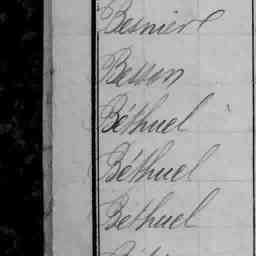 Besnier
Besson
Béthuel
Béthuel
Béthuel